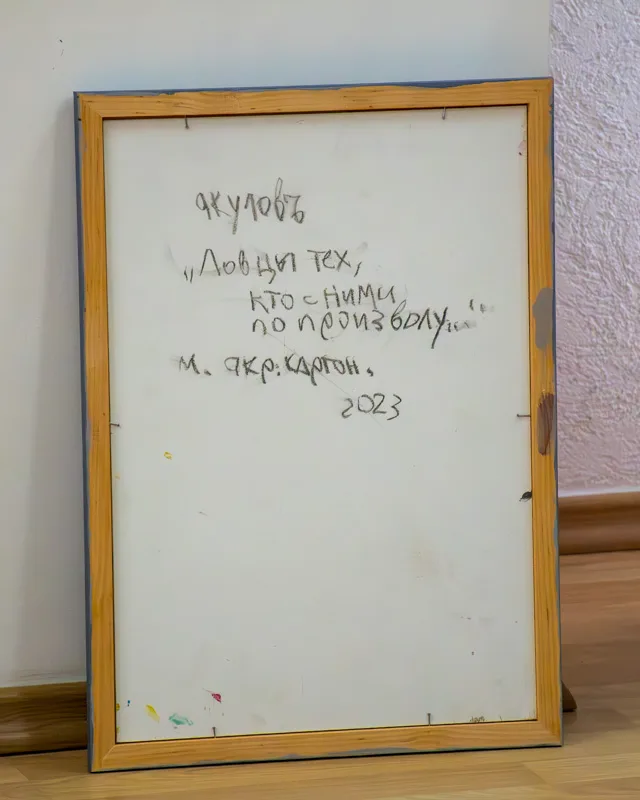 якуловъ
„Ловцы тех,
кто с ними
по произволу..."
м. акр. картон.
2023